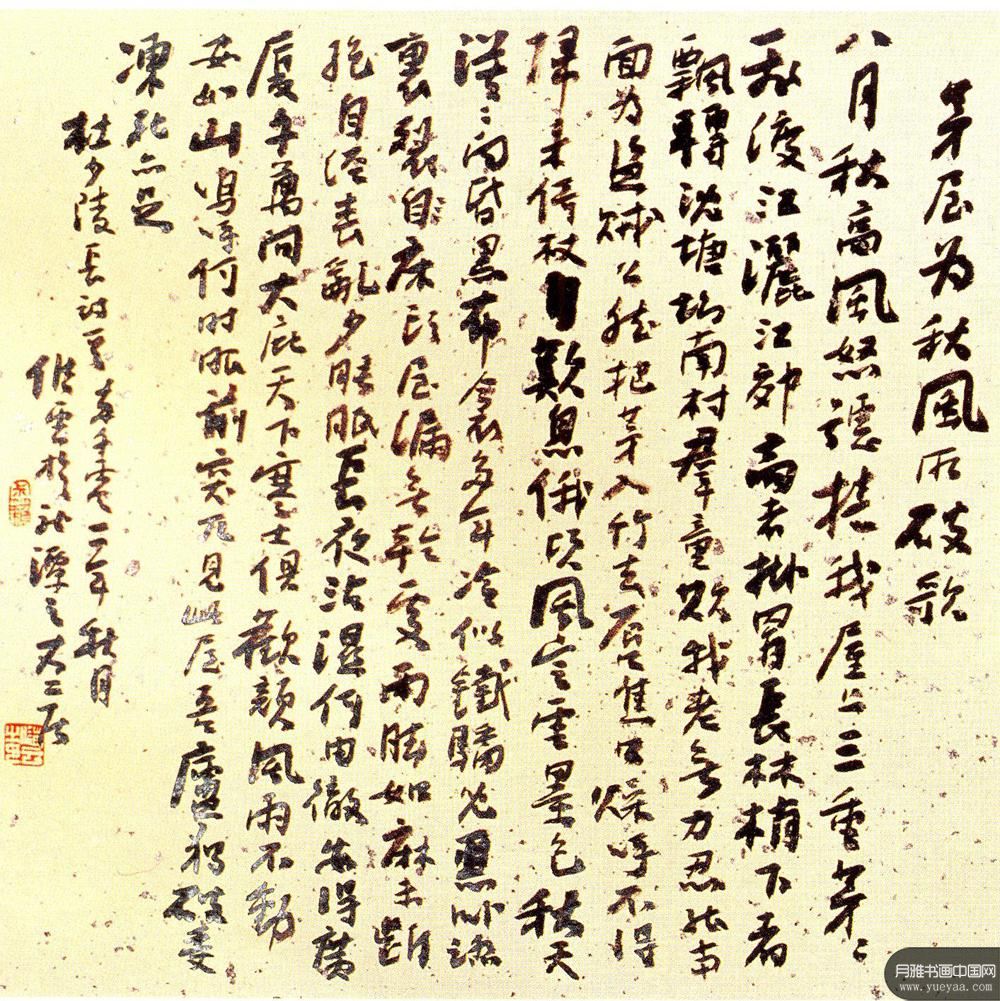 茅屋为秋風所破歌
八月秋高風怒號捲我屋上三重茅〻
飛渡江灑江郊高者掛罥長林梢下者
飄轉沈塘坳南村羣童欺我老無力忍能對
面为盜賊公然把茅入竹去唇焦口燥呼不得
歸来倚杖自歎息俄頃風定雲墨色秋天
漠〻向昏黑布衾多年冷似鐵驕兒惡卧踏
裏裂床頭屋漏無乾處雨脚如麻未斷
絕自經丧亂少睡眠長夜沾濕何由徹安得廣
厦千萬间大庇天下寒士俱歡顏風雨不動
安如山嗚呼何时眼前突兀見此屋吾廬獨破受
凍死亦足
杜少陵長詩 零一年秋月
雲於 潭之
月雅书画中国网
www.yueyaa.com